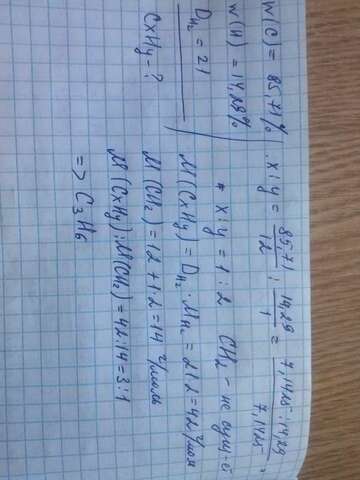 w(C) = 85,71%
w(H) = 14,29%
D H₂ = 21
CxHy - ?
x:y = 85,71/12 : 14,29/1 = 7,1425:14,29/7,1425 =
* x:y = 1:2 CH₂ - не сущ-ет
M(CxHy) = D H₂ · M H₂ = 21·2 = 42 г/моль
M(CH₂) = 12 + 1·2 = 14 г/моль
M(CxHy):M(CH₂) = 42:14 = 3:1
=> C₃H₆